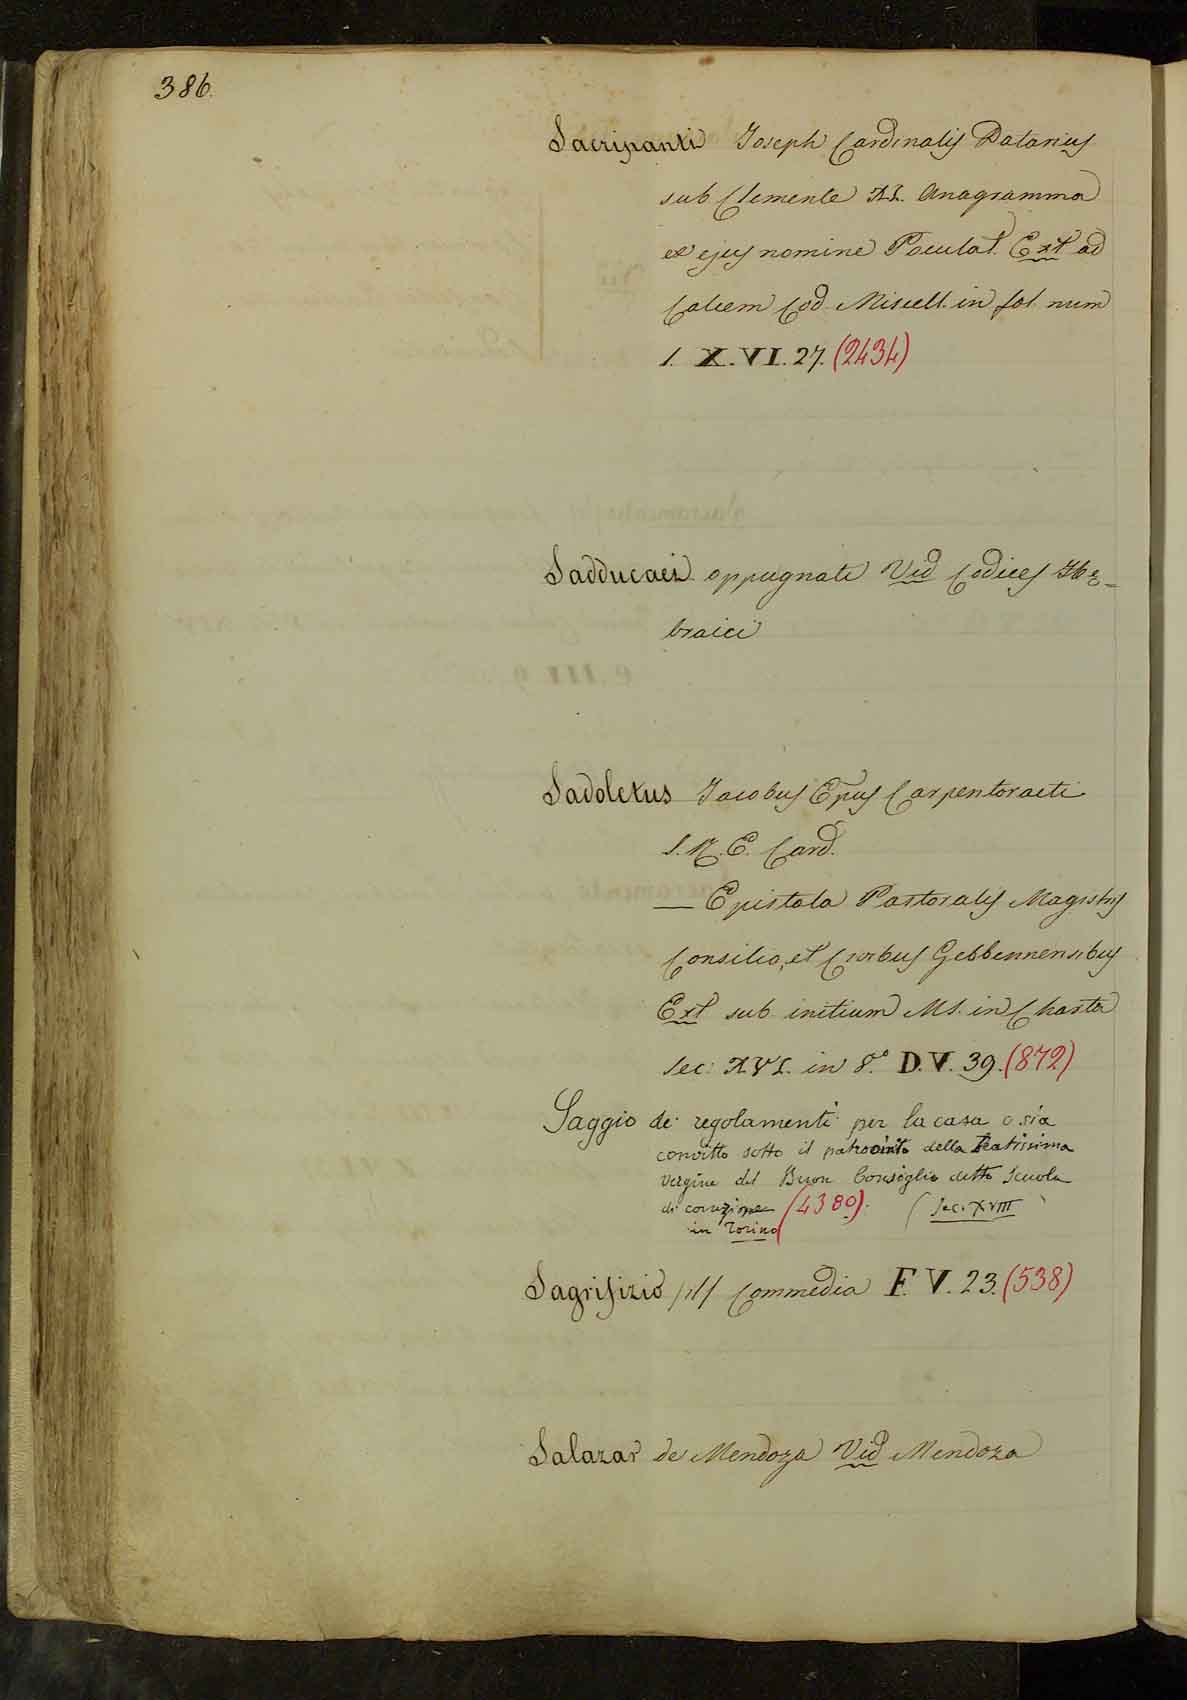 386.
Sacripanti Joseph Cardinalis Datarius
sub Clemente XI. Anagramma
ex ejus nomine Poculat. Ext ad
Calcem Cod Miscell. in fol. num
1. X.VI.27. (2434)
Sadducaei oppugnati Vid Codices He-
braici
Sadoletus Jacobus Epus Carpentoracti
S.R.E. Card.
— Epistola Pastoralis Magistris
Consilio, et Civibus Gebbennensibus
Ext sub initium MS. in Charta
sec: XVI. in 8.o D.V.39. (872)
Saggio de' regolamenti per la casa o sia
convitto sotto il patrocinio della Beatissima
vergine del Buon Consiglio detto Scuola
di correzione (4380). (Sec. XVIII
in Torino
Sagrifizio (il) Commedia F.V.23. (538)
Salazar de Mendoza Vid Mendoza